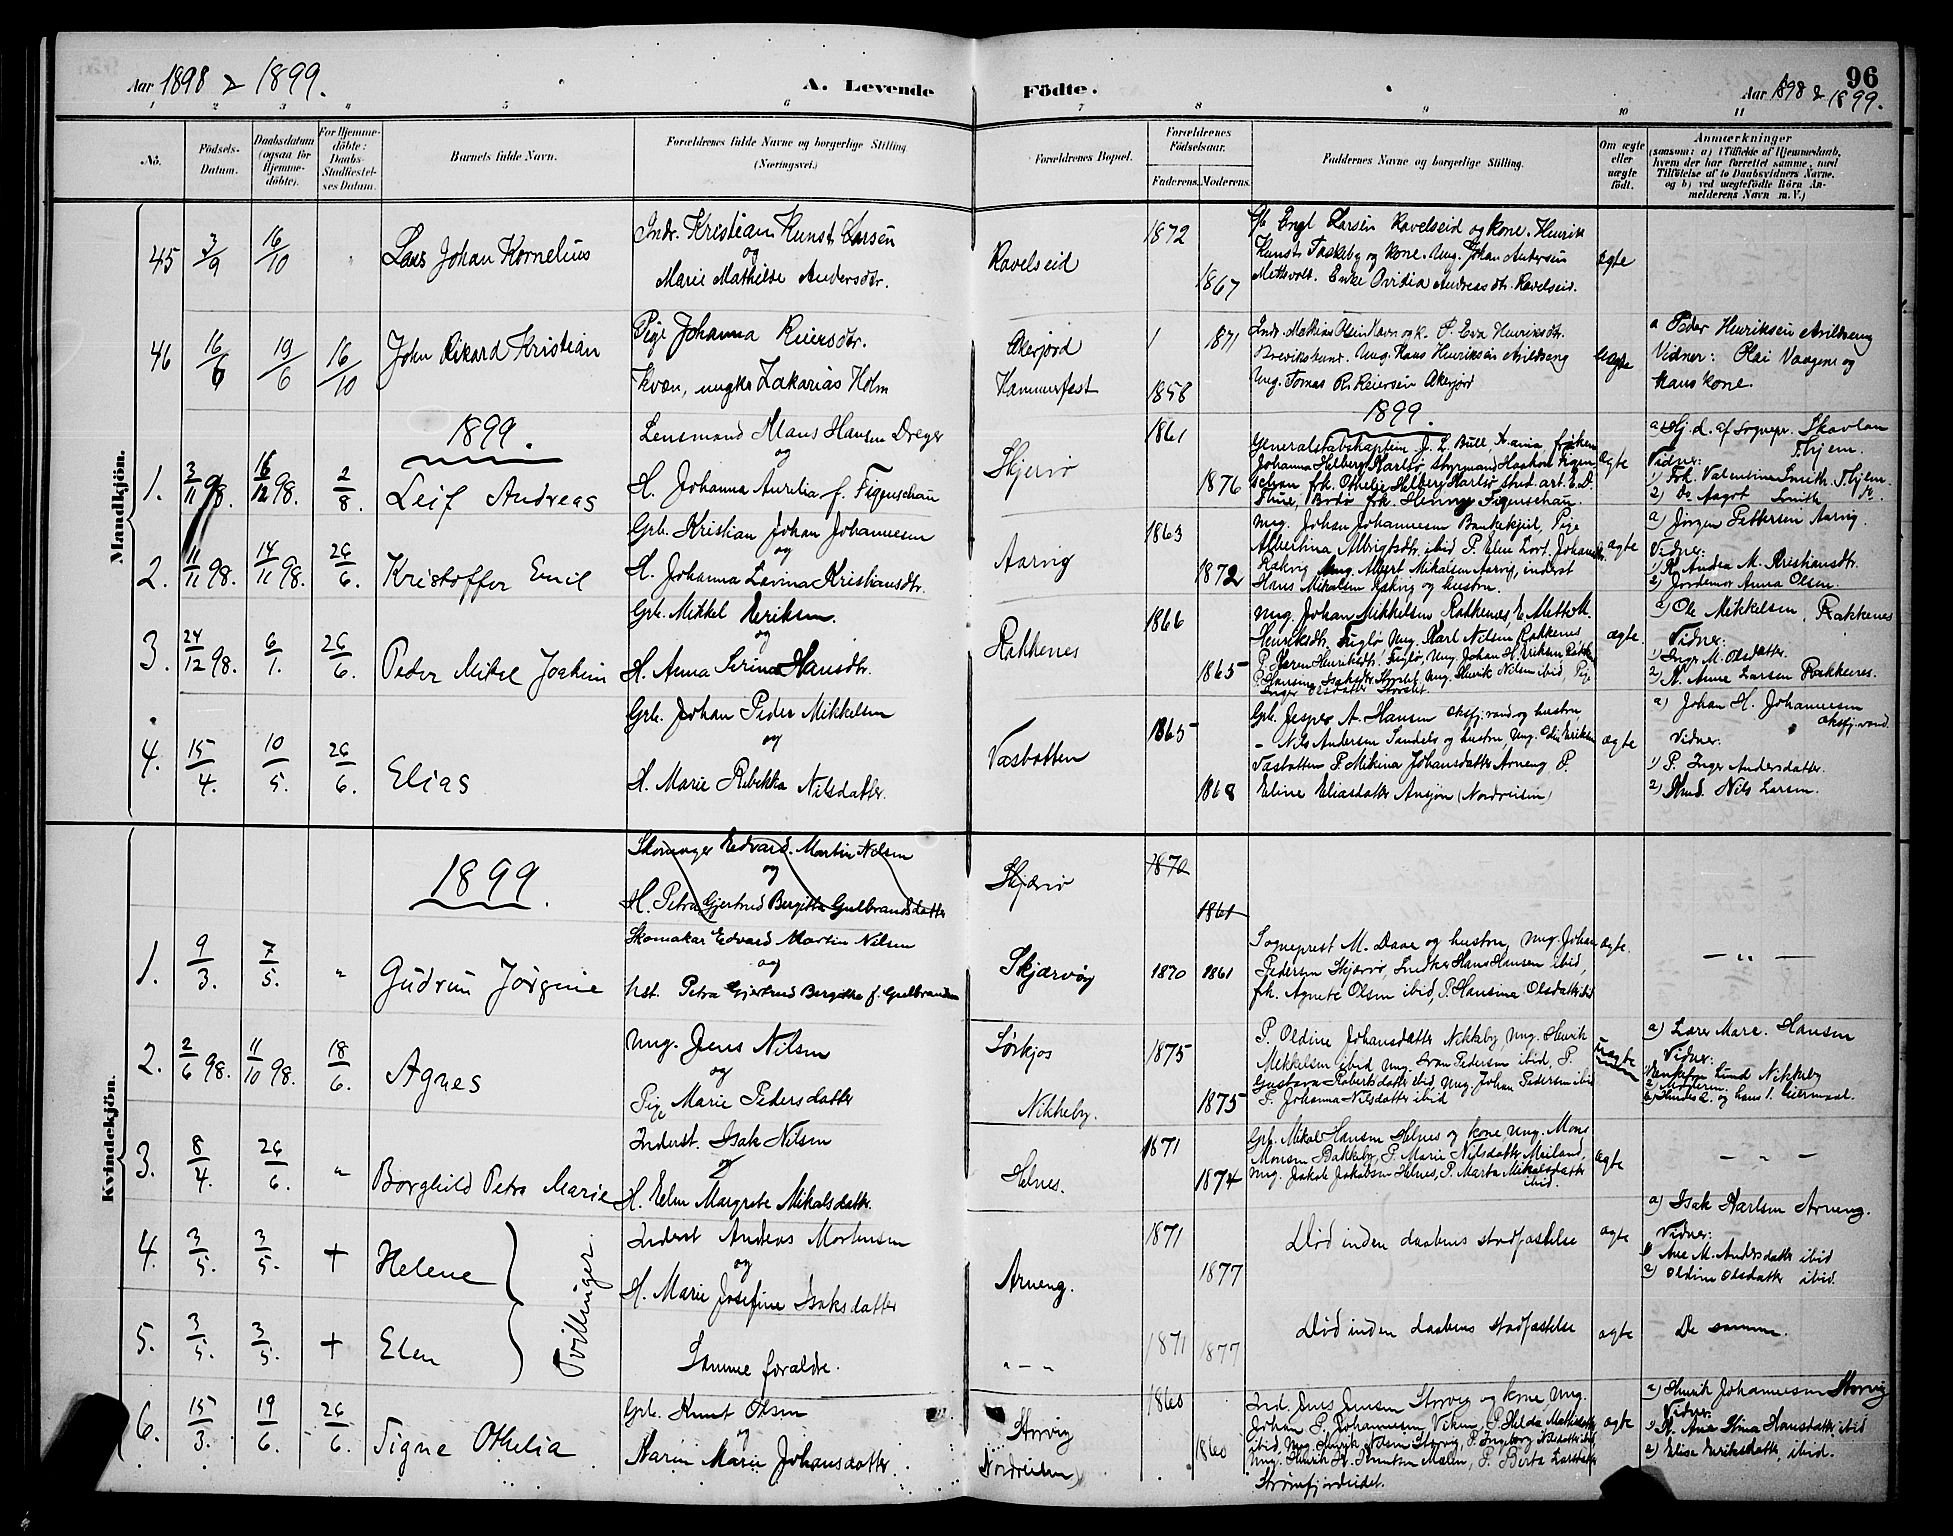 Aar 1898 & 1899.
A. Levende Födte.
96
Aar 1898 & 1899.
1 2 3 4 5 6 7 8 9 10 11
No.
Födsels-Datum.
Daabsdatum (ogsaa for Hjemme-döbte).
For Hjemme-döbte: Daabs-Stadfæstel-ses Datum.
Barnets fulde Navn.
Forældrenes fulde Navne og borgerlige Stilling (Næringsvei.)
Forældrenes Bopæl.
Forældrenes Födselsaar.
Faderens. Moderens.
Faddernes Navne og borgerlige Stilling.
Om ægte eller uægte födt.
Anmærkninger
(saasom: a) i Tilfælde af Hjemmedaab,
hvem der har forrettet samme, med
Tilföielse af to Daabsvidners Navne.
og b) ved uægtefödte Börn An-
melderens Navn m. V.)
Mandkjön.
45 3/9 16/10 " Lars Johan Kornelius
Indr. Kristian Kunst Larsen
og
Marie Mathilde Andersdtr.
Ravelseid
1872
1867
Engl Larsen Ravelseid og kone. Henrik
Kunst Taskeby og kone. Ung. Johan Andersen
Mettevolt. Enke Ovidia Andreasdtr. Ravelseid.
ægte
46 16/6 19/6 16/10 John Rikard Kristian
Pige Johanna Reiersdtr.
Kvæn, ungkr Zakarias Holm
Akerjord
Hammerfest
1 1871
1858
Ung. Hans Henriksen Arildseng
Ung. Tomas R. Reiersen Akerjord
uægte
a Peder Henriksen Arildseng
Vidner: Olai Vaagene og
Hans kone.
1899.
1899.
1. 3/11 98. 16/12 98. 2/8. Leif Andreas
Lensmand Maus Hansen Dreyer
og
H. Johanna Aurelia f. Figenschau
Skjervø
1861
1876
Generalstabskaptein J. L. Bull, Frøken
Johanna Helberg Karlsø, Styrmand Haakon Figen-
schau frk. Othelie Helberg Karlsø stud. art. E. D.
Thue, Bodø frk. Henny Figenschau.
ægte
a) Hj. d. af Sognepr. Skavlan
Thjem.
Vidner:
1) Frk. Valentine Smith. Thjem
2) Do Aagot Smith
2. 11/11 98. 14/11 98. 26/6. Kristoffer Emil
Grb. Kristian Johan Johannesen
og
H. Johanna Lavina Kristiansdtr.
Aarvig
1863
1872
Ung. Johan Johannesen Bankekjeil, Pige
Albertina Albrigtsdtr. ibid P. Elen Lovt. Johans
Rakvig Ung. Albert Mikalsen Aarvig, inderst
Hans Mikalsen Rakvig og hustru.
ægte
a) Jørgen Pettersen Aarvig.
Vidner:
1) K. Andrea M. Kristiansdtr.
2) Jordemor Anna Olsen.
3. 24/12 98. 6/1. 26/6. Peder Mikal Joakim
Grb. Mikkel Eriksen.
og
H. Anna Serina Hansdtr.
Rakkenes
1866
1865
Ung. Johan Mikkelsen Rakkenes, E. Mette M.
Henriksdtr. Fuglø, Ung. Karl Nilsen Rakkenes,
P. Karen Henriksdtr. Fuglø, Ung Johan H. Eriksen
P. Hansine Isaksdtr. Storslet Ung. Henrik Nilsen ibid, Pige
Inger Olsdatter Storslet.
ægte.
a) Ole Mikkelsen, Rakkenes
Vidner:
1) Inger M. Olsdatter.
2) K. Anne Larsen Rakkenes.
4. 15/4. 10/5. 26/6. Elias
Grb. Johan Peder Mikkelsen
og
H. Marie Rebekka Nilsdatter.
Vasbotten
1865
1868
Grb. Jesper A. Hansen Oksfj.vand og hustru,
– Nils Andersen Sandels og hustru, Ung. Edin Eriksen
Vasbotten P. Mikina Johansdatter Arneng P.
Eline Eliasdatter Ansjøn (Nordreisen)
ægte
a) Johan H. Johannesen
Oksfj.vand.
Vidner:
1) P. Inger Andersdatter.
2) Nils Larsen.
Kvindekjön.
1899.
Skomager Edvard. Martin Nilsen
og
H. Petra Gjertrud Bergitte Gulbrandsdatter
Skjærvø
1870
1861
1. 9/3. 7/5. " Gudrun Jørgine
Skomakar Edvard Martin Nilsen
og
hst. Petra Gjertrud Bergitte f. Gulbrandsen
Skjærvøy
1870 1861
Sogneprest M. Daae og hustru, Ung. Johan
Pedersen Skjærvø, Snedker Hans Hansen ibid,
frk. Agnete Olsen ibid, P. Hansina Olsdatter ibid
ægte.
— " —
2. 2/6 98. 11/10 98. 18/6. Agnes
Ung. Jens Nilsen
og
Pige Marie Pedersdatter
Sørkjos
Nikkeby.
1875
1875
P. Oldine Johansdatter Nikkeby Ung. Henrik
Mikkelsen ibid, Ung. Ivar Pedersen ibid, P.
Gustava Robertsdatter ibid, Ung. Johan Pedersen ibid
P. Johanna Nilsdatter ibid
uægte
a) Lærer Marc. Hansen
Vidner:
Lund Nikkeby
2) Moderen.
3. 8/4. 26/6. " Borghild Petra Marie
Inderst. Isak Nilsen
og
H. Elen Margrete Mikalsdatter.
Helnes.
1871
1874
Grb. Mikal Hansen Helnes og kone, Ung. Mons
Monsen Bakkeby, P. Marie Nilsdatter Meiland,
Ung. Jakob Jakobsen Helnes, P. Marta Mikalsdatter
ibid.
ægte
— " —
4. 3/5. 3/5. + Helene
Tvillinger.
Inderst Andreas Mortensen
og
H. Marie Josefine Isaksdatter
Arneng.
1871
1877
Død inden daabens stadfæstelse
ægte
a) Isak Karlsen Arneng.
Vidner:
1) Ane M. Andersdatter ibid
2) Oldine Olsdatter ibid.
5. 3/5. 3/5. + Elen
Samme forældre.
" – "
1871 1877
Død inden daabens stadfæstelse
ægte
De samme.
6. 15/3. 19/6. 26/6. Signe Othelia
Grb. Knut Olsen
og
Karin Marie Johansdatter.
Storvig
Nordreisen)
1860
1860
Ind. Jens Jensen Storvig og kone, Ung.
Johan P. Johannesen, Viken, P. Hilda Mathisdatter
ibid, Ung. Henrik Nilsen Storvig, P. Ingeborg Nilsdatter ibid
Ung. Henrik K. Knutsen Malen, P. Berta Larsdatter
Strømfjordeidet.
ægte
a) Henrik Johannesen Storvig
Vidner:
1) K. Ane Stina Hansdatter ibid
2) Elise Eriksdatter, ibid.